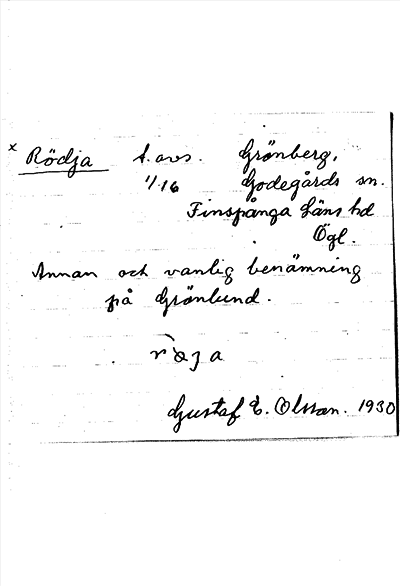 x Rödja f. avs. Grönberg,
1/16 Godegårds sn.
Finspånga Läns hd
Ögl.
Annan och vanlig benämning
på Grönlund.
Gustaf E. Olsson. 1930